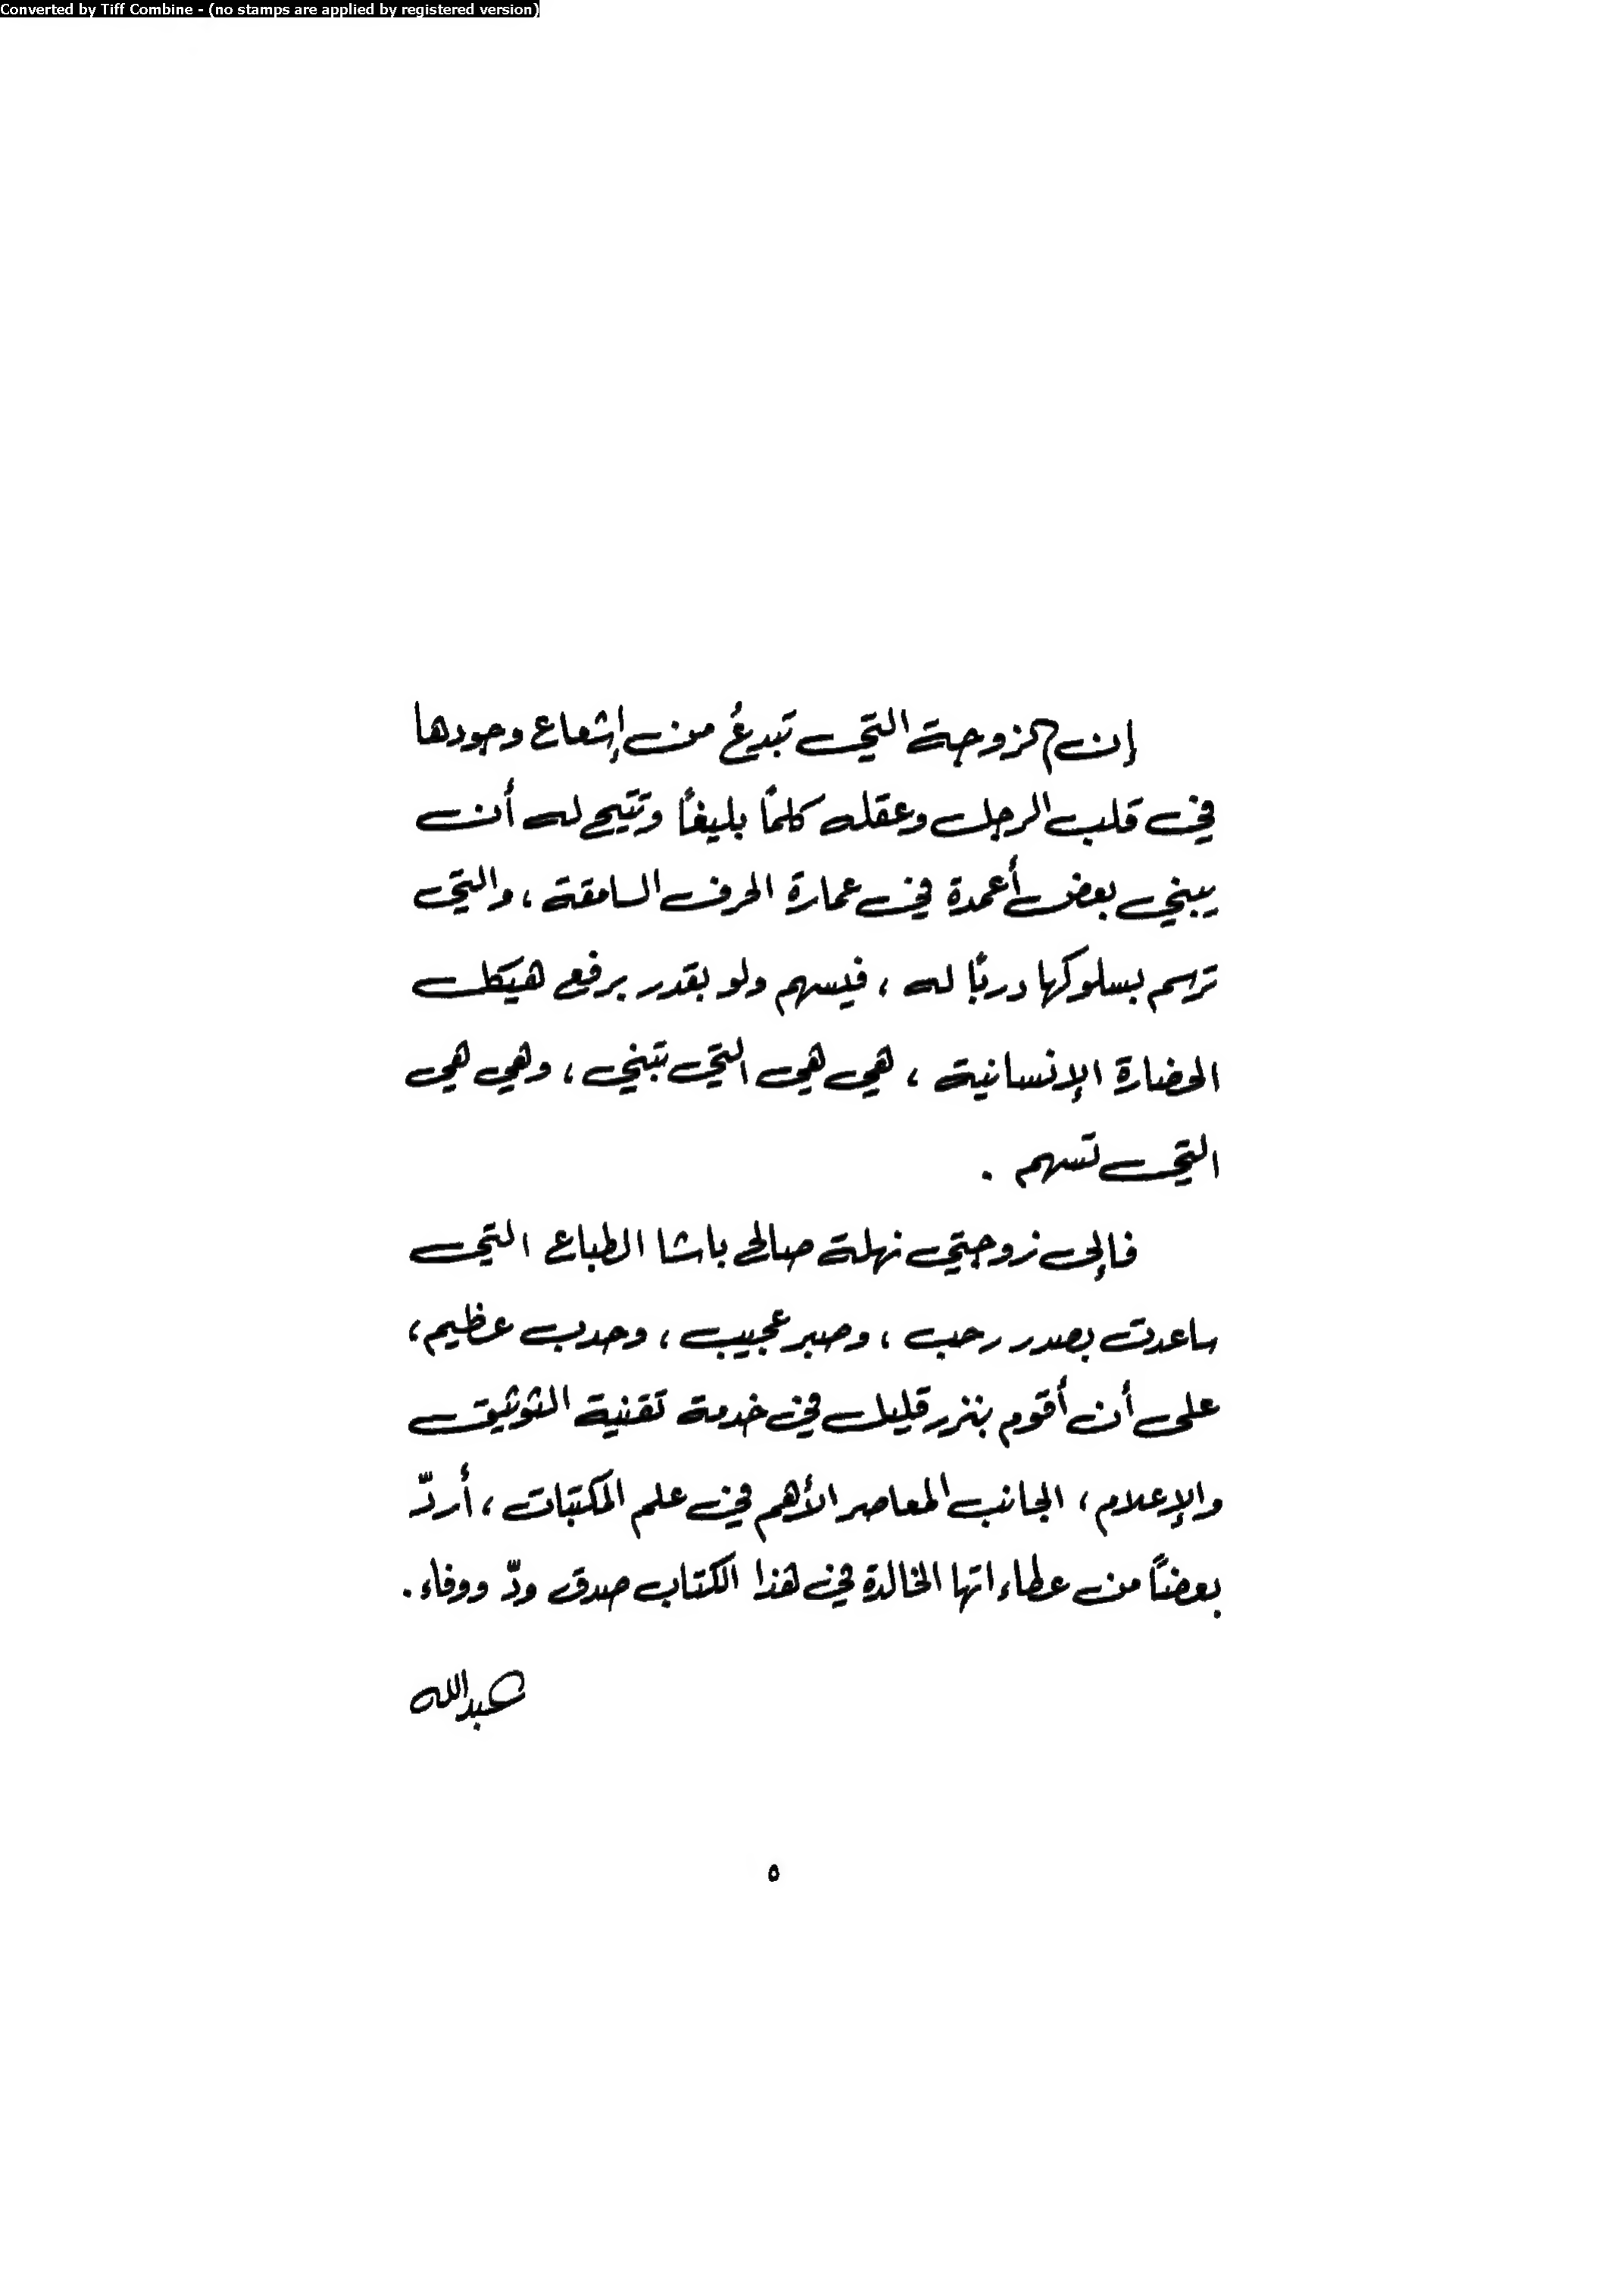 Converted by Tiff Combine - (no stamps are applied by registered version)
إن الزوجة التي تبدعُ من إشعاع وجودها
في قلب الرجل وعقله كلمًا بليغًا وتتيح له أن
يبني بعض أعمدة في عمارة الحرف السامقة ، والتي
ترسم بسلوكها دربًا له ، فيسهم ولو بقدر برفع هيكل
الحضارة الإنسانية ، هي هي التي تبني ، وهي هي
التي تسهم .
فإلى زوجتي نهلة صالح باشا الطباع التي
ساعدت بصدر رحب ، وصبر عجيب ، وحدب عظيم ،
على أن أقوم بنزر قليل في خدمة تقنية التوثيق
والإعلام ، الجانب المعاصر الأهم في علم المكتبات ، أردّ
بعضًا من عطاءاتها الخالدة في هذا الكتاب صدق ودّ ووفاء .
عبدالله
٥